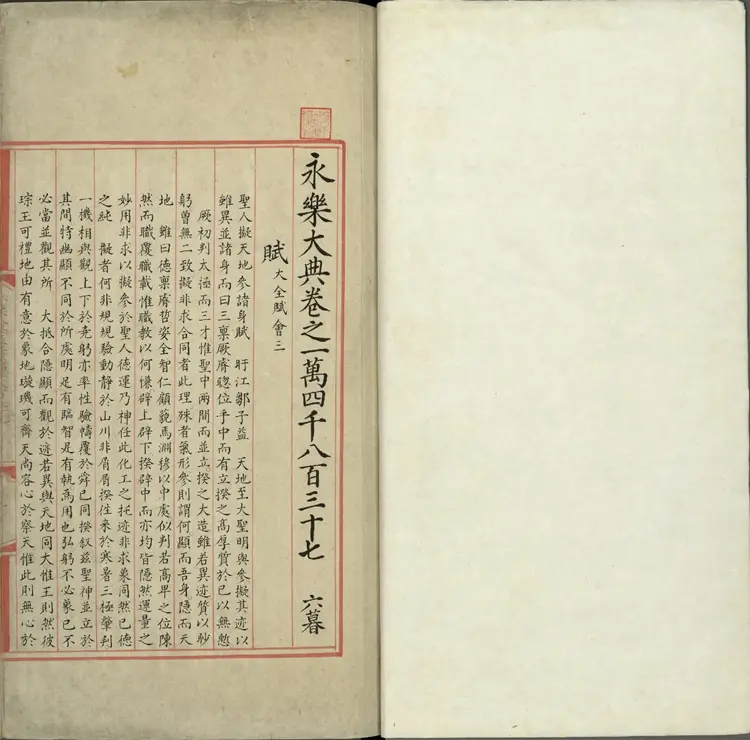 永樂大典卷之一萬四千八百三十七 六暮
賦 大全賦會三
聖人擬天地參諸身賦 盱江鄒子益 天地至大聖明與參擬其迹以
雖異並諸身而曰三稟厥睿聦位乎中而有立揆之髙厚質於已以無慙
厥初判太極而三才惟聖中兩間而並立揆之大造雖若異迹質以眇
躬曾無二致擬非求合同者此理殊者氣形參則謂何顯而吾身隱而天
地 雖曰德稟睿哲姿全智仁顧藐焉淵穆以中處似判若髙卑之位陳
然而職覆職載惟職教以何慊辟上辟下揆辟中而亦均皆隱然運量之
妙用非求以擬參於聖人德運乃神任此化工之托迹非求象同然已德
之純 擬者何非規規驗動靜於山川非屑屑揆徃來於寒暑三極肇判
一機相與觀上下於堯躬亦率性驗幬覆於舜已同揆叙兹聖神並立於
其間特幽顯不同於所處明足有臨智足有執焉用也弘躬不必象已不
必當並觀其所 大抵合隱顯而觀於迹若異與天地同大惟王則然彼
琮王可禮地由有意於象地璇璣可齊天尚容心於察天惟此則無心於